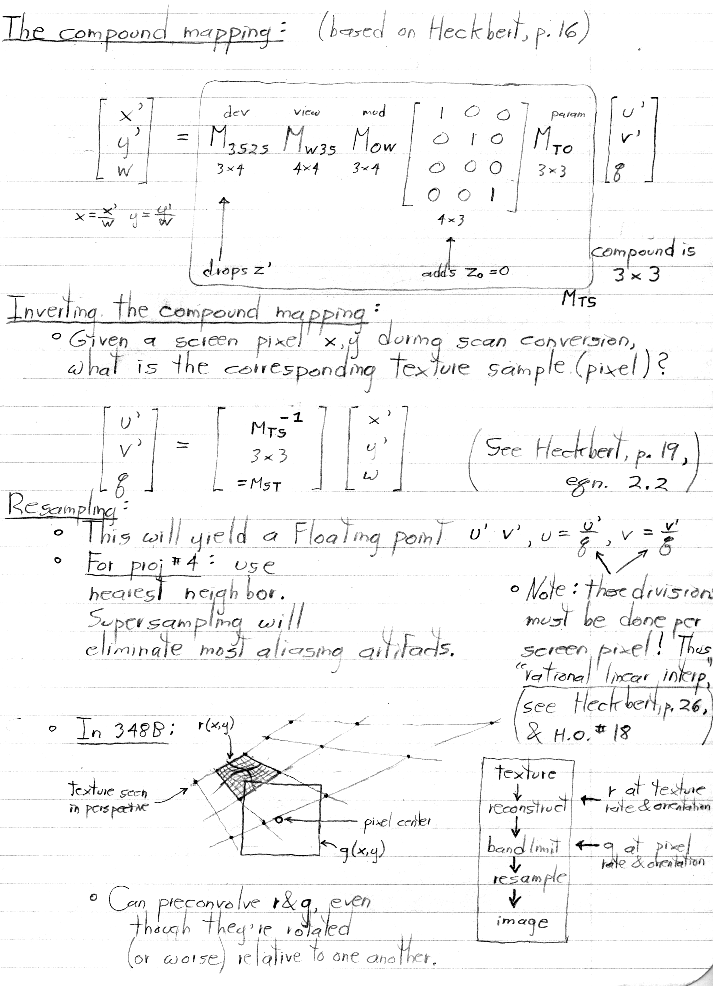 The compound mapping: (based on Heckbert, p.16)
dev view mod param
[x' y' w] = M3S2S MW3S MOW [1 0 0 / 0 1 0 / 0 0 0 / 0 0 1] MTO [u' v' q]
3×4 4×4 3×4 4×3 3×3
x = x'/w y = y'/w
drops z' adds Zo = 0
compound is
3×3
MTS
Inverting the compound mapping:
° Given a screen pixel x,y during scan conversion,
what is the corresponding texture sample (pixel)?
[u' v' q] = [MTS⁻¹ 3×3 = MST] [x' y' w]
(See Heckbert, p. 19,
eqn. 2.2)
Resampling:
° This will yield a floating point u' v', u = u'/q, v = v'/q
° For proj #4: use
nearest neighbor.
Supersampling will
eliminate most aliasing artifacts.
° Note: those division
must be done per
screen pixel! Thus
"rational linear interp,"
(see Heckbert, p.26,
& H.O. #18
° In 348B:
r(x,y)
texture seen
in perspective
pixel center
g(x,y)
texture
↓
reconstruct ← r at texture
rate & orientation
↓
bandlimit ← g at pixel
rate & orientation
↓
resample
↓
image
° Can preconvolve r&g, even
though they're rotated
(or worse) relative to one another.